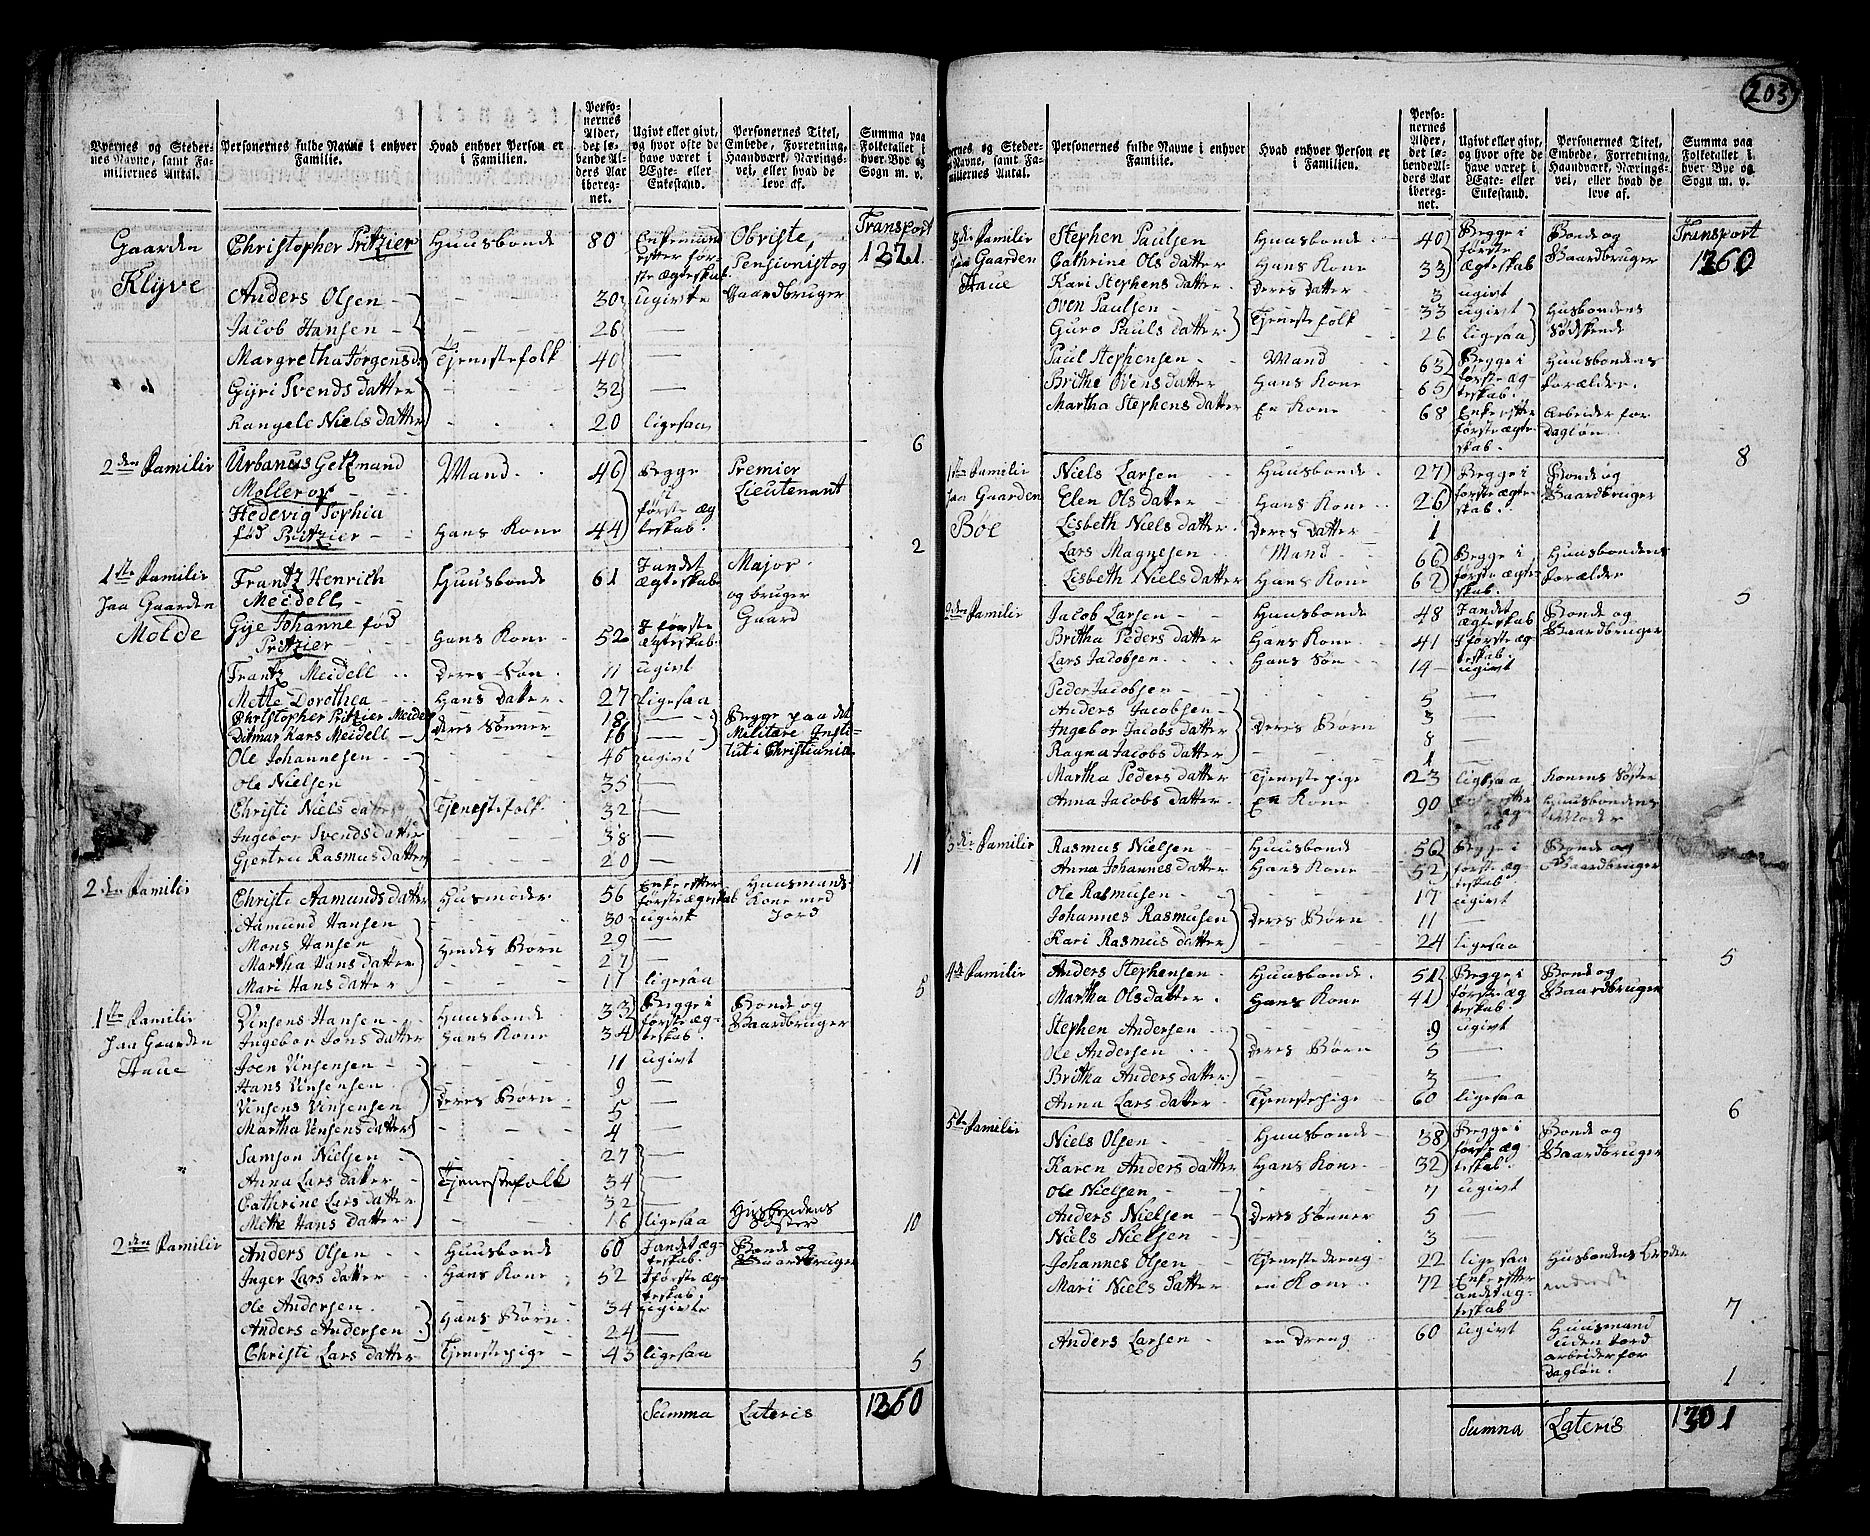 203
Byernes og Stedernes Navne, samt Familiernes Antal. | Personernes fulde Navne i enhver Familie. | Hvad enhver Person er i Familien. | Personernes Alder, det løbende Alders Aar iberegnet. | Ugivt eller givt, og hvor ofte de have været i Ægte- eller Enkestand. | Personernes Titel, Embede, Forretning, Haandværk, Næringsvei, eller hvad de leve af. | Summa paa Folketallet i hver Bye og Sogn m. v.
Transport 1321.
Gaarden Christopher Pritzier Huusbonde 80 Enkemand efter første ægteskab Obriste, Pensionist og Gaardbruger
Klyve
Anders Olsen 30 ugivte
Jacob Hansen 26 —
Margretha Jørgensd Tjenestefolk 40 —
Gyri Svends datter 32 —
Rangele Niels datter 20 ligesaa
6
2den Familie Urbanus Getzmand Mollerop Mand 46 Begge i første ægteskab Premier Lieutenant
Hedevig Sophia fød Pritzier Hans Kone 44
2
1ste Familie Frantz Henrich Meidell Huusbonde 61 I andet ægteskab Major og bruger Gaard
paa Gaarden
Molde Gye Johanne fød Pritzier Hans Kone 52 I første ægteskab
Frantz Meidell Deres Søn 11 ugivt
Mette Dorothea Hans Datter 27 ligesaa
Christopher Pritzier Meidell Deres Sønner 18 — Begge paa det Militære Institut i Christiania
Ditmar Kars Meidell 16 —
Ole Johannesen 46 ugivt
Ole Nielsen 35 —
Christi Niels datter Tjenestefolk 32 —
Ingebor Svends datter 38 —
Gjertru Rasmus datter 20 —
11
2den Familie Christi Aamunds datter Husmoder 56 Enke efter første ægteskab Huusmands Kone med Jord
Aamund Hansen 30 ugivt
Mons Hansen Hendes Børn 29 —
Martha Hans datter 27 —
Mari Hans datter 17 ligesaa
5
1ste Familie Vinsens Hansen Huusbonde 33 Begge i første ægteskab Bonde og Gaardbruger
paa Gaarden Ingebor Jons datter Hans Kone 34
Haue Joen Vinsensen 11 ugivt
Hans Vinsensen 9 —
Vinsens Vinsensen Deres Børn 5 —
Martha Vinsens datter 4 —
Samson Nielsen 27 —
Anna Lars datter Tjenestefolk 34 —
Cathrine Lars datter 32 —
Mette Hans datter 16 ligesaa Husbondens Søster
10
2den Familie Anders Olsen Huusbonde 60 I andet ægteskab Bonde og Gaardbruger
Inger Lars datter Hans Kone 52 I første ægteskab
Ole Andersen 34 ugivte
Anders Andersen Hans Børn 24 —
Christi Lars datter Tjenestepige 43 ligesaa
5
Summa Lateris 1360
Byernes og Stedernes Navne, samt Familiernes Antal. | Personernes fulde Navne i enhver Familie. | Hvad enhver Person er i Familien. | Personernes Alder, det løbende Alders Aar iberegnet. | Ugivt eller givt, og hvor ofte de have været i Ægte- eller Enkestand. | Personernes Titel, Embede, Forretning, Haandværk, Næringsvei, eller hvad de leve af. | Summa paa Folketallet i hver Bye og Sogn m. v.
Transport 1260
3die Familie Stephen Paulsen Huusbonde 40 Begge i første ægteskab Bonde og Gaardbruger
paa Gaarden Cathrine Ols datter Hans Kone 33
Haue Kari Stephens datter Deres datter 3 ugivt
Oven Paulsen Tjenestefolk 33 ugivt Husbondens Sødskende
Guro Pauls datter 26 ligesaa
Paul Stephensen Mand 63 Begge i første ægteskab Huusbondens Forældre
Brithe Ovens datter Hans Kone 65
Martha Stephens datter En Kone 68 Enke efter første ægteskab Arbeider for Dagløn
8
1ste Familie Niels Larsen Huusbonde 27 Begge i første ægteskab Bonde og Gaardbruger
paa Gaarden Elen Ols datter Hans Kone 26
Bøe Lisbeth Niels datter Deres Datter 1
Lars Magnesen Mand 66 Begge i første ægteskab Huusbondens Forældre
Lisbeth Niels datter Hans Kone 62
5
2den Familie Jacob Larsen Huusbonde 48 I andet ægteskab Bonde og Gaardbruger
Britha Peders datter Hans Kone 41 I første ægteskab
Lars Jacobsen Hans Søn 14 ugivt
Peder Jacobsen 5 —
Anders Jacobsen 3 —
Ingebor Jacobs datter Deres Børn 8
Ragna Jacobs datter 1 —
Martha Peders datter Tjenestepige 23 ligesaa Konens Søster
Anna Jacobs datter En Kone 90 Huusbondens Moder
3die Familie Rasmus Nielsen Huusbonde 56 Begge i første ægteskab Bonde og Gaardbruger
Anna Johannes datter Hans Kone 52
Ole Rasmusen 17 ugivt
Johannes Rasmusen Deres Børn 11 —
Kari Rasmus datter 24 ligesaa
5
4de Familie Anders Stephensen Huusbonde 51 Begge i første ægteskab Bonde og Gaardbruger
Martha Ols datter Hans Kone 41
Stephen Andersen 9 ugivt
Ole Andersen Deres Børn 5 —
Britha Anders datter 3 —
Anna Lars datter Tjenestepige 60 ligesaa
6
5te Familie Niels Olsen Huusbonde 38 Begge i første ægteskab Bonde og Gaardbruger
Karen Anders datter Hans Kone 32
Ole Nielsen 7 ugivt
Anders Nielsen Deres Sønner 5 —
Niels Nielsen 3 —
Johannes Olsen Tjenestedreng 22 ligesaa Husbondens Broder
Mari Niels datter en Kone 72 Enke efter andet ægteskab
7
Anders Larsen en Dreng 60 ugivt Huusmand uden Jord arbeider for Dagløn
1
Summa Lateris 1301